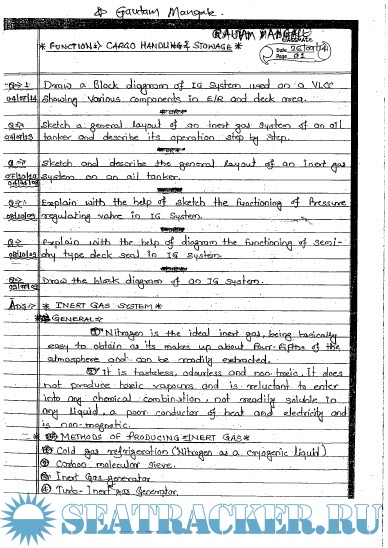 Gautam Mangale
GAUTAM MANGALE
CLASSMATE
* FUNCTION:> CARGO HANDLING & STOWAGE *
Date
Page 01
Q:> Draw a Block diagram of IG System used on a VLCC
showing various components in E/R and deck area.
Q:> Sketch a general layout of an inert gas system of an oil
tanker and describe its operation step by step.
Q:> Sketch and describe the general layout of an inert gas
system on an oil tanker.
Q:> Explain with the help of sketch the functioning of Pressure
regulating valve in IG System.
Q:> Explain with the help of diagram the functioning of semi-
dry type deck seal in IG System.
Q:> Draw the block diagram of an IG System.
Ans:> * INERT GAS SYSTEM *
GENERAL:>
① Nitrogen is the ideal inert gas, being basically
easy to obtain as its makes up about four-fifths of the
atmosphere and can be readily extracted.
② It is tasteless, odourless and non-toxic. It does
not produce toxic vapours and is reluctant to enter
into any chemical combination, not readily soluble in
any liquid, a poor conductor of heat and electricity and
is non-magnetic.
* METHODS OF PRODUCING INERT GAS:>
① Cold gas refrigeration (Nitrogen as a cryogenic liquid)
② Carbon molecular sieve.
③ Inert Gas generator
④ Turbo-Inert gas Generator.
SEATRACKER.RU